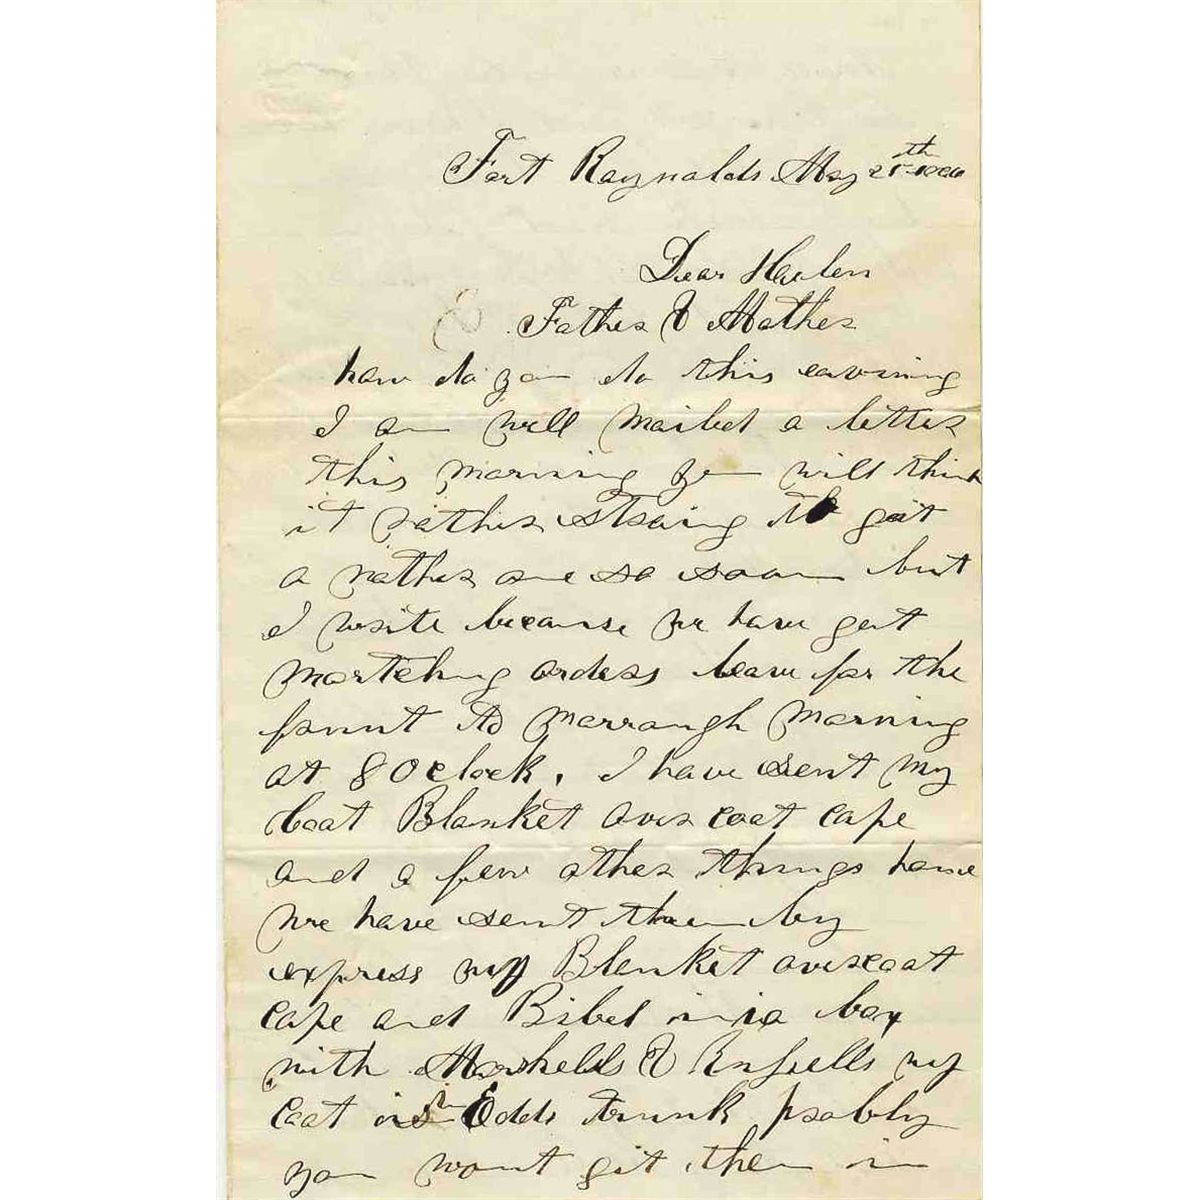 Fort Raynolds May
Dear Haylen
Father & Mother
how do you do this eavining
I am well mailed a letter
this morning you will think
it rather straing to geit
a nother one so soon but
I write because we have geit
martching orders leave for the
frunt to morrough morning
at 8 Oclock. I have sent my
Coat Blanket over coat cape
and a few other things home
we have sent them by
express my Blanket overcoat
cape and Bibel in a box
with & my
Coat in Edds trunk probly
you wont git them in